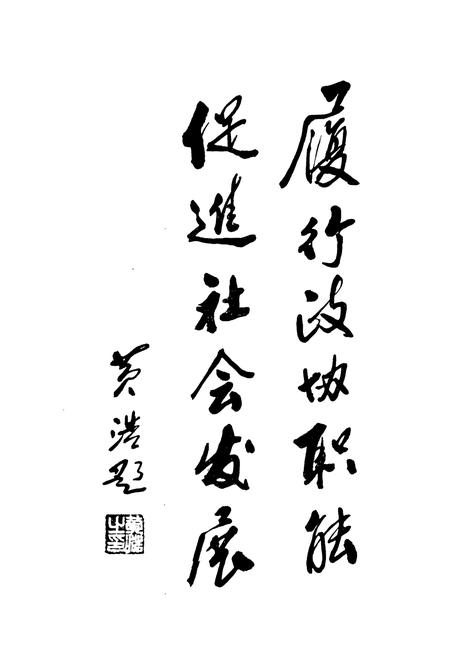 履行政协职能
促進社会发展
黄浩题